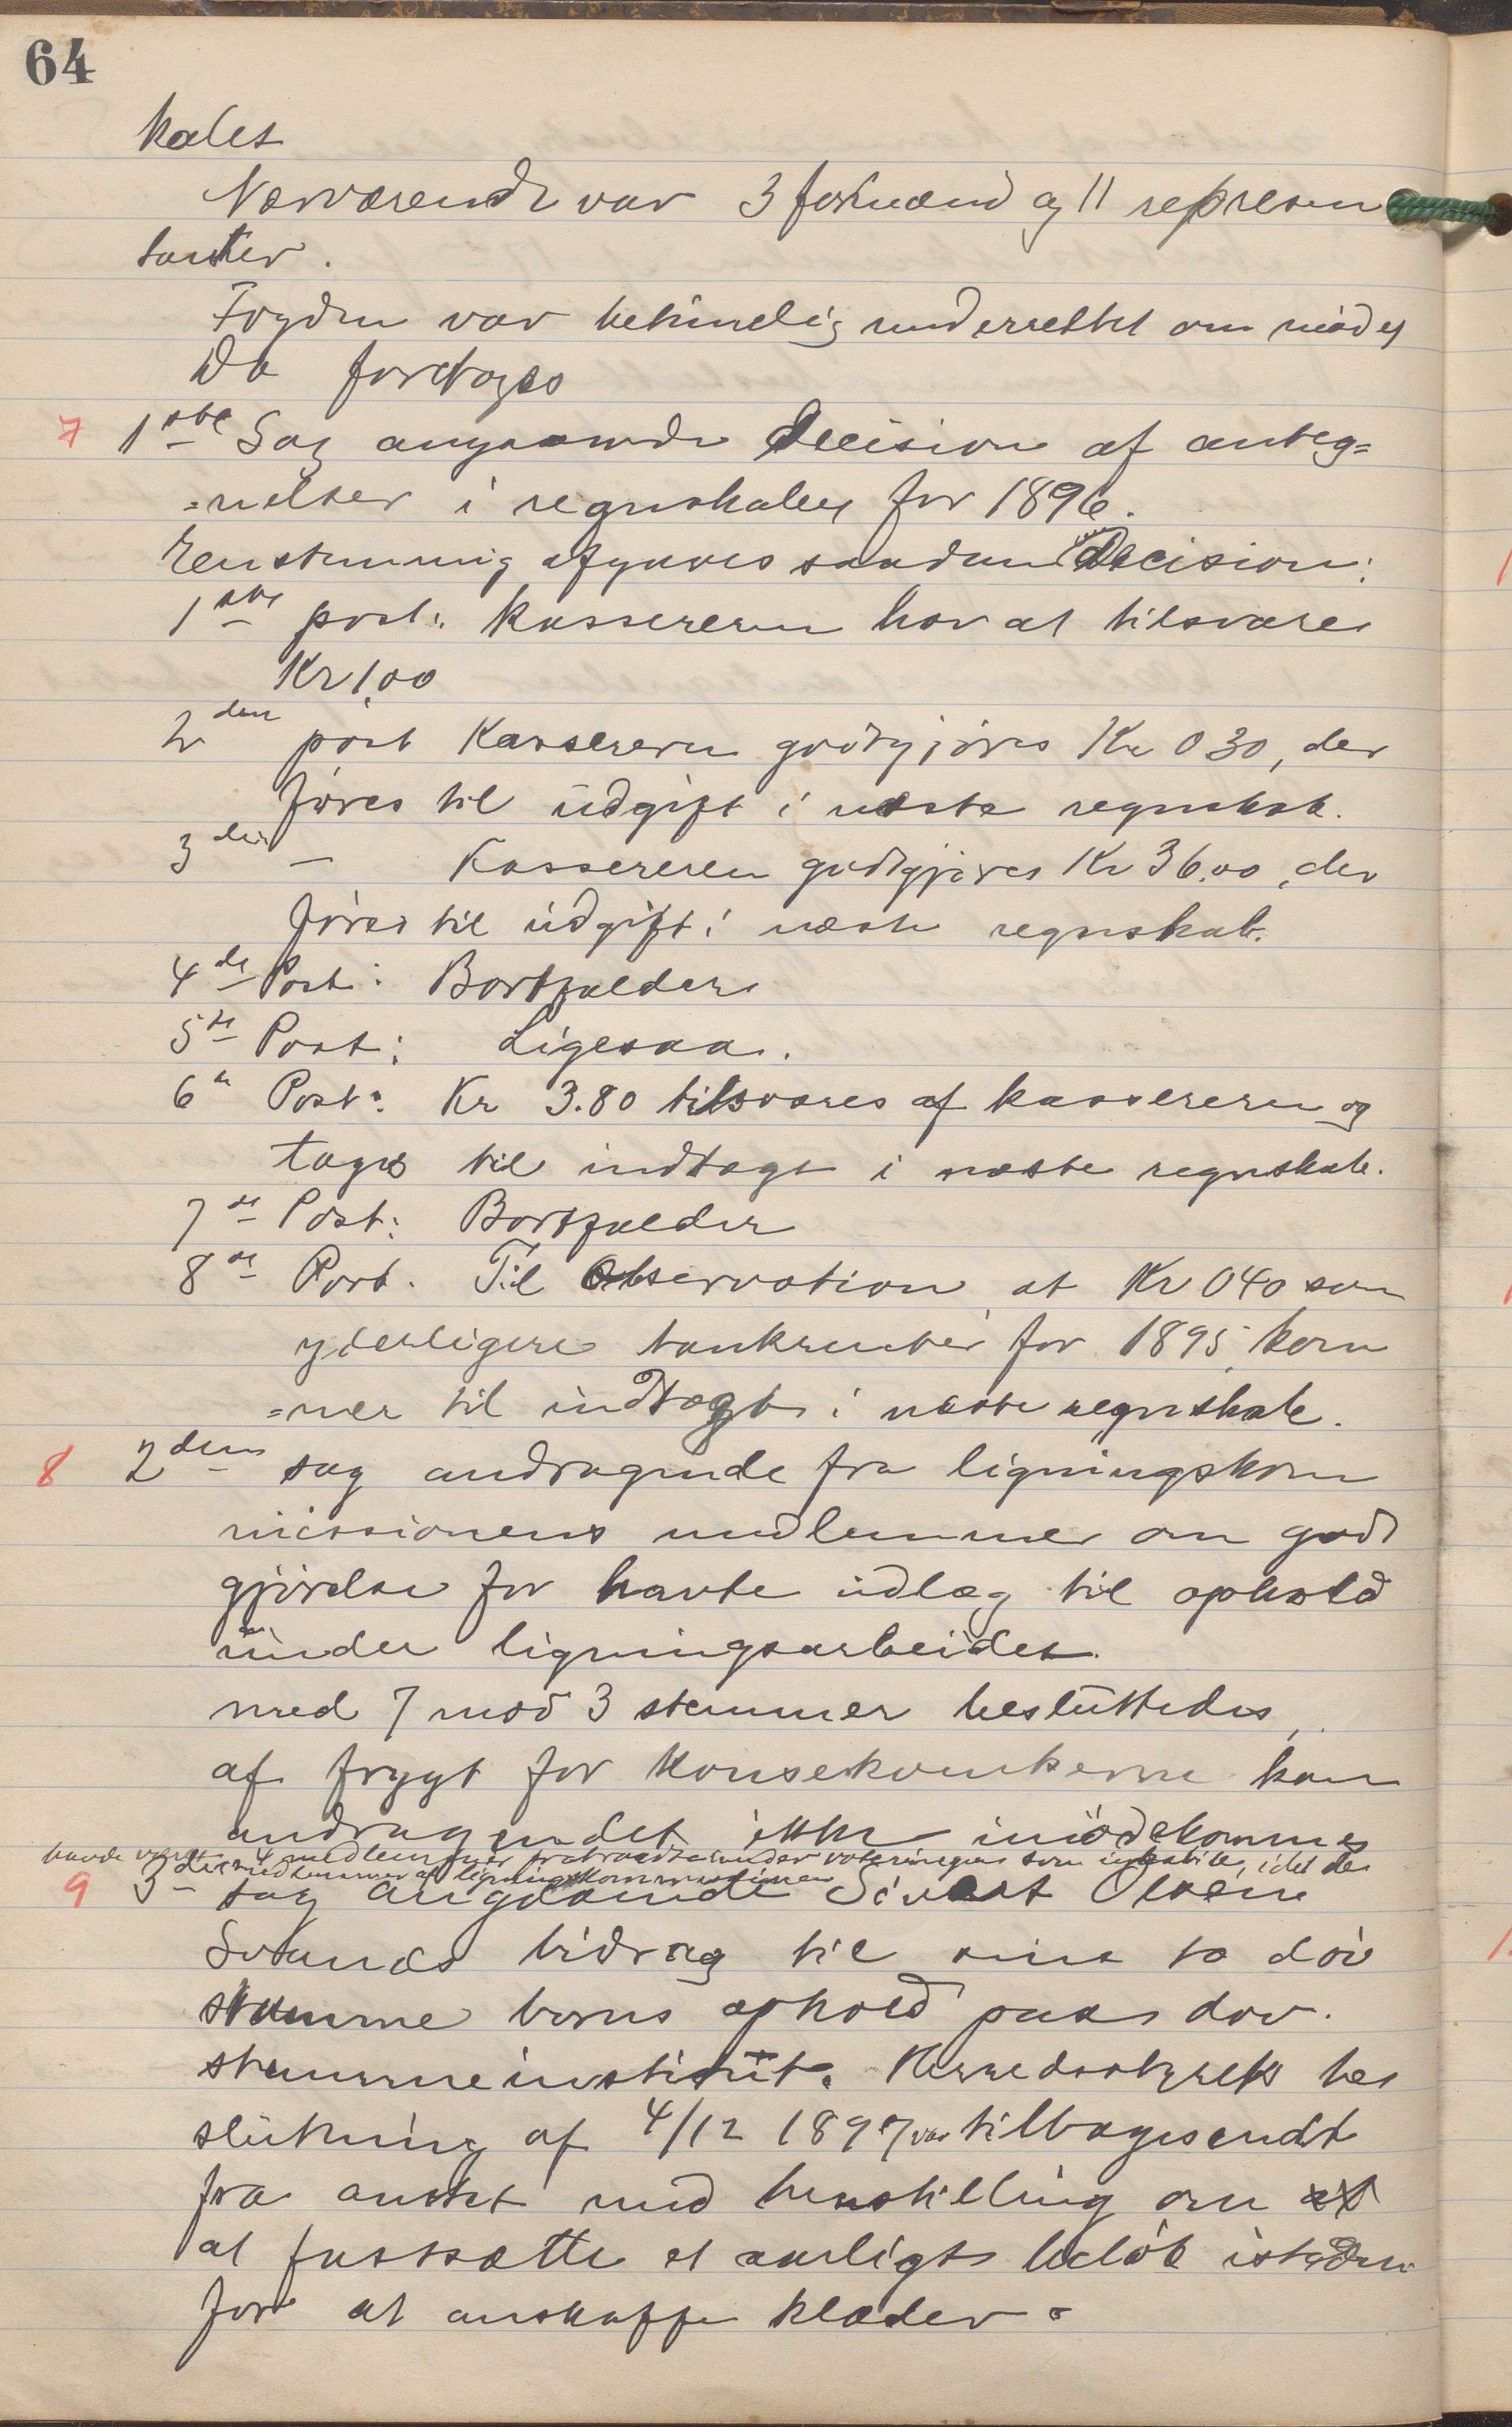 64
kalet
Nærværende var 3 formænd og 11 represen
tanter.
Fogden var betimelig underrettet om mødet
Da foretoges
7 1ste Sag angaaende Decision af anteg=
=nelser i regnskabet for 1896.
Eenstemmig afgaves saadan Decision:
1ste post: Kassereren har at tilsvare
Kr 1,00
2den post Kassereren godtgjøres Kr 0 30, der
føres til udgift i næste regnskab.
3die — Kassereren godtgjøres Kr 36.00, der
føres til udgift i næste regnskab.
4de Post: Bortfalder
5te Post: Ligesaa.
6te Post: Kr 3.80 tilsvares af kassereren og
tages til indtægt i næste regnskab.
7de Post: Bortfalder
8de Post. Til Observation at Kr 040 som
yderligere bankrenter for 1895, kom
=mer til indtægt i næste regnskab.
8 2den sag andragende fra ligningskom
missionens medlemmer om god
gjørelse for havte udlæg til ophold
under ligningsarbeidet.
med 7 mod 3 stemmer besluttedes,
af frygt for Konsekventserne kan
andragendet ikke imødekommes
4 medlemmer fratraadte under voteringen som inhabile, idet de
havde været medlemmer af ligningskommissionen
9 3die sag angaaende Sivert Olsen
Svands bidrag til sine to døv
stumme børns ophold paa døv.
stummeinstitut. Herredsstyrets be
slutning af 4/12 1897 var tilbagesendt
fra amtet med henstilling om
at fastsætte et aarligt beløb isteden
for at anskaffe klæder.